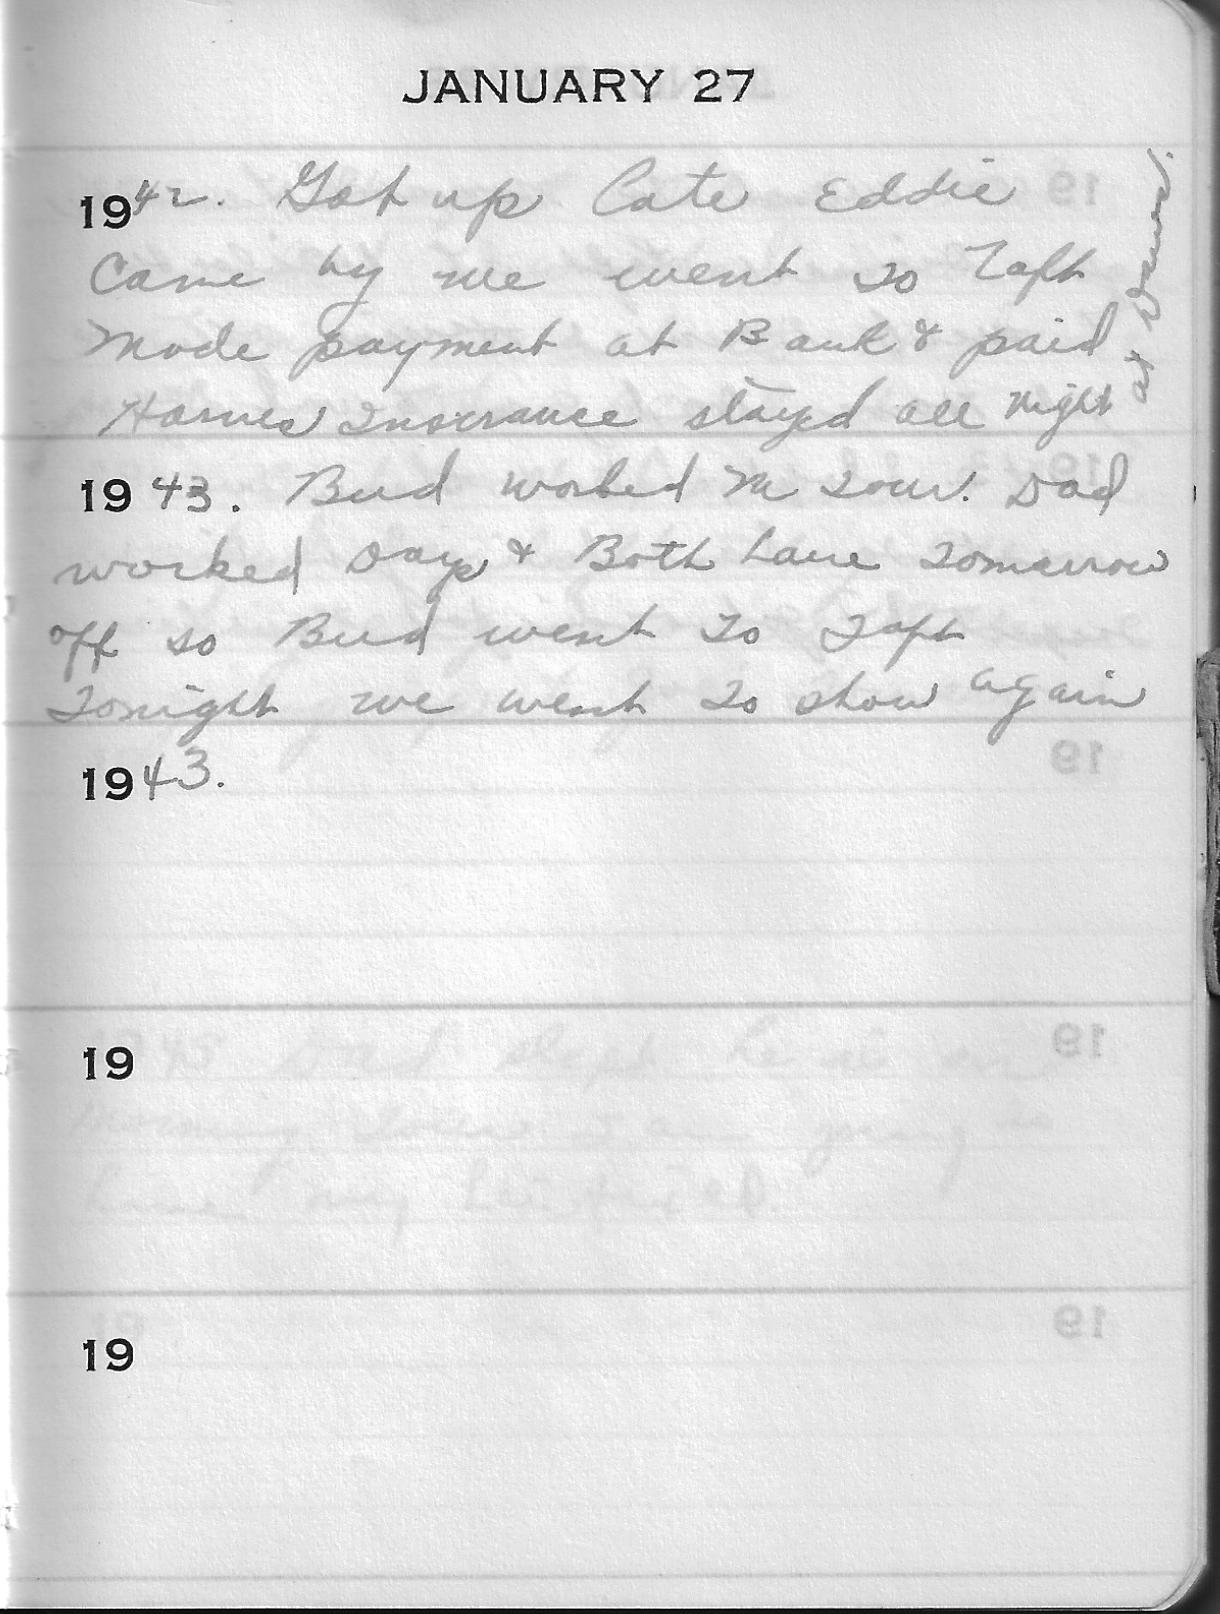 JANUARY 27
1942. Got up Late Eddie
Came by we went to Taft
Made payment at Bank & paid
Insurance stayed all night
at
1943. Bud worked in town. Dad
worked Days & Both have tomorrow
off so Bud went to Taft
tonight we went to show again
1943.
19
19